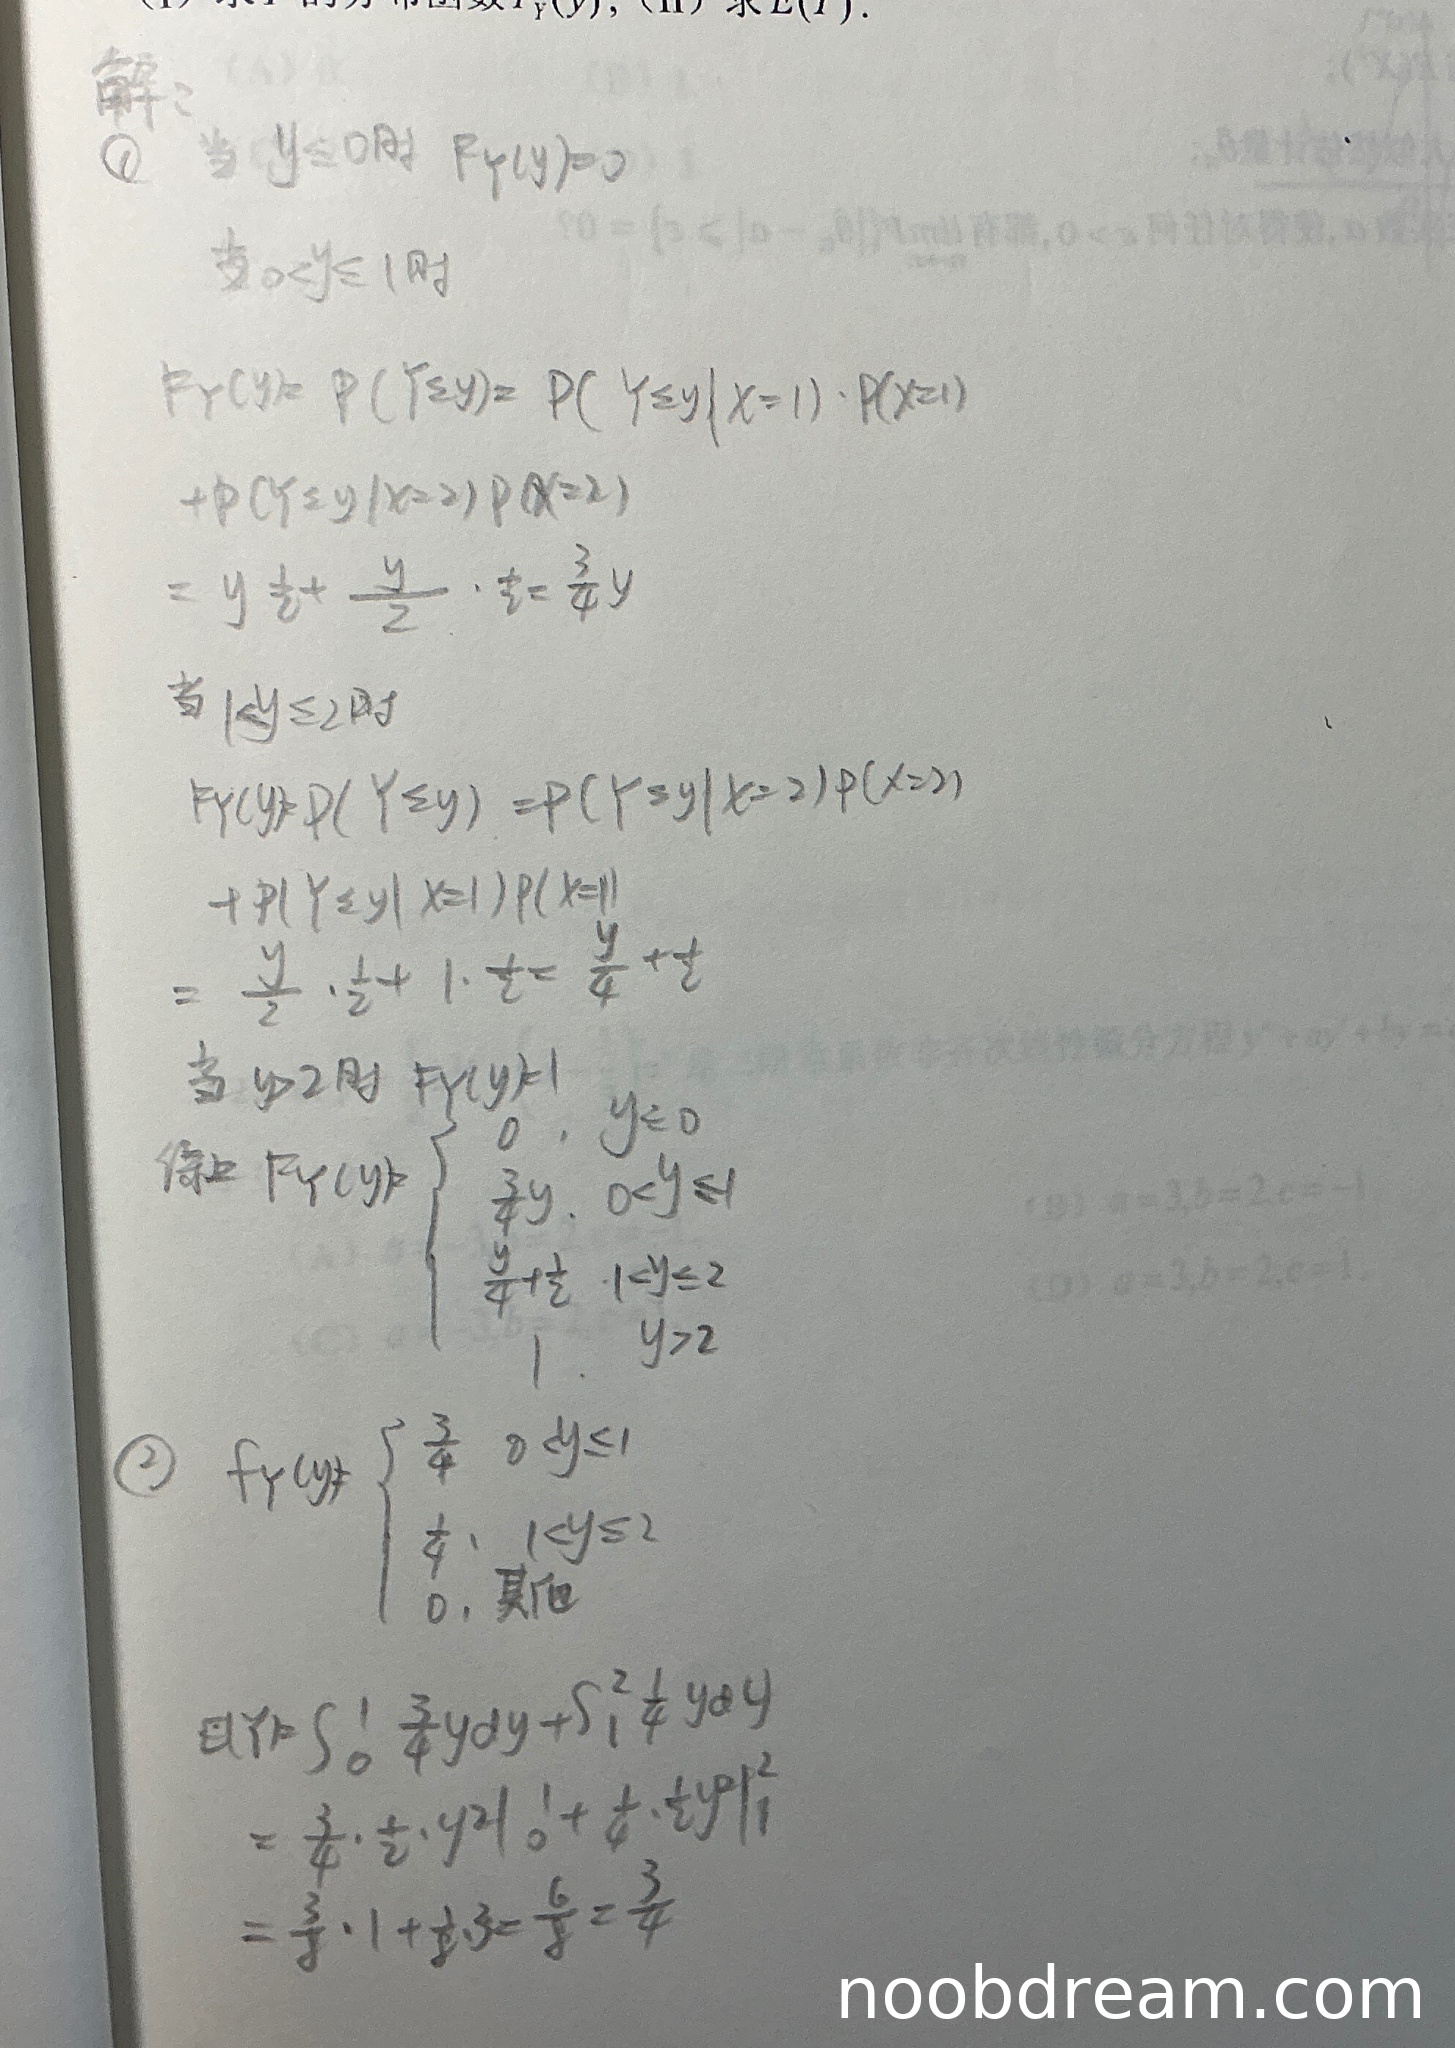 的分布函数F_Y(y); (II) 求E(Y).
解:
① 当 y≤0时 F_Y(y)=0
当0<y≤1时
F_Y(y)= P(Y≤y)= P(Y≤y|X=1)·P(X=1)
+P(Y≤y|X=2)P(X=2)
= y 1/2 + y/2 · 1/2 = 3/4 y
当 1<y≤2时
F_Y(y)=P(Y≤y) =P(Y≤y|X=2)P(X=2)
+P(Y≤y|X=1)P(X=1)
= y/2 · 1/2 + 1 · 1/2 = y/4 + 1/2
当 y>2时 F_Y(y)=1
综上 F_Y(y)= { 0, y≤0
3/4 y, 0<y≤1
y/4+1/2, 1<y≤2
1, y>2
② f_Y(y)= { 3/4 0<y≤1
1/4, 1<y≤2
0, 其他
E(Y)= ∫_0^1 3/4 ydy + ∫_1^2 1/4 ydy
= 3/4 · 1/2 · y²|_0^1 + 1/4 · 1/2 y²|_1^2
= 3/8 · 1 + 1/8 · 3 = 6/8 = 3/4
noobdream.com